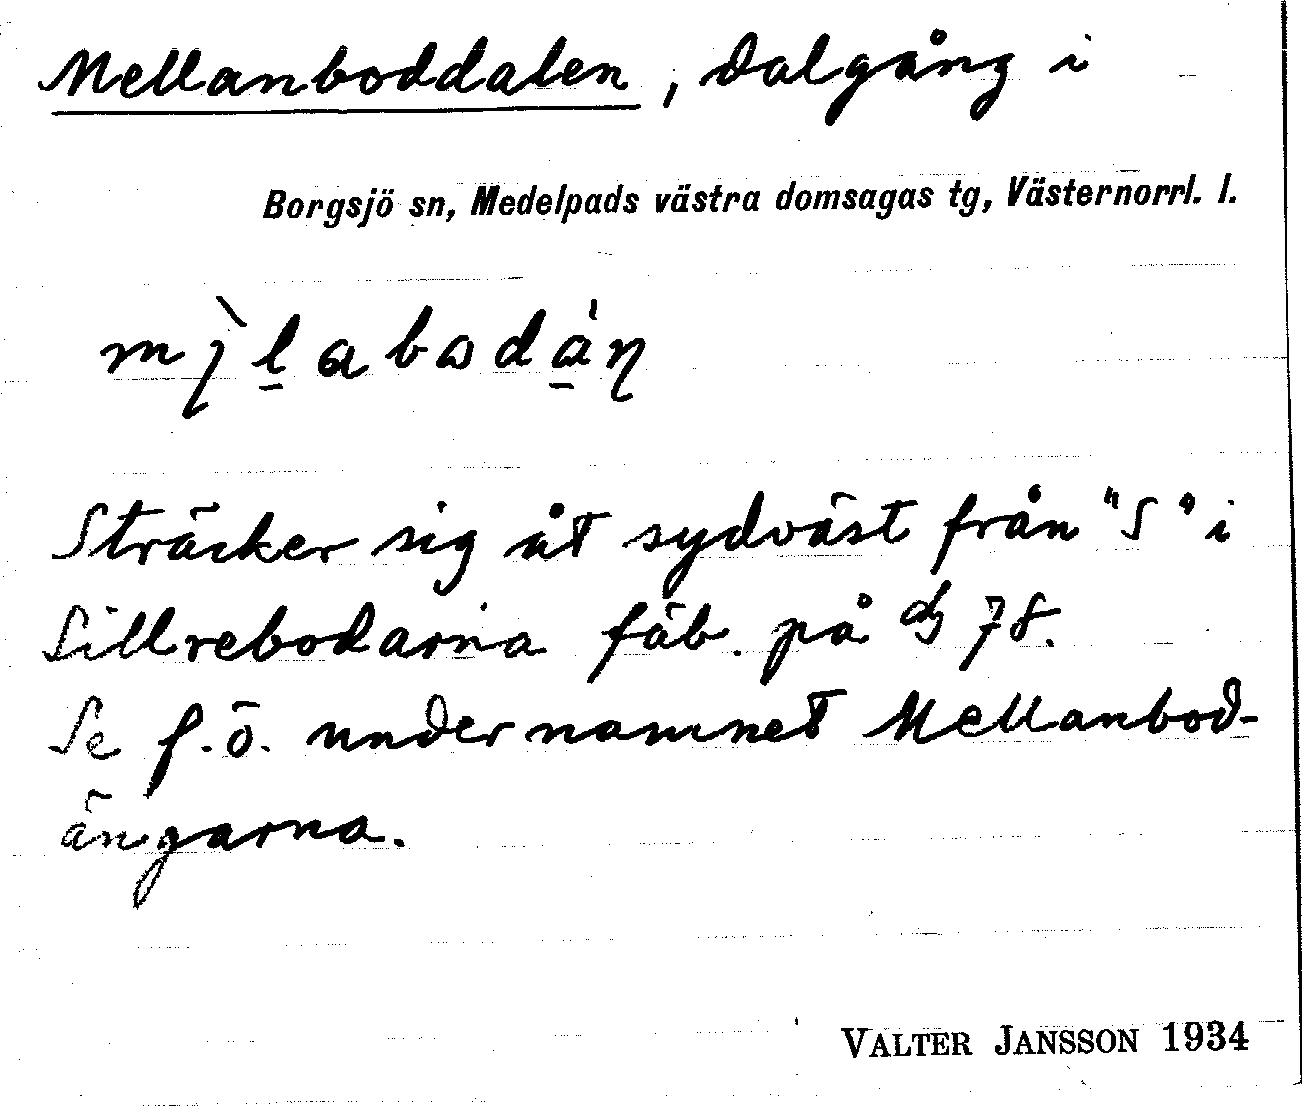 Mellanboddalen, dalgång i
Borgsjö sn, Medelpads västra domsagas tg, Västernorrl. l.
Sträcker sig åt sydväst från "S" i
Sillrebodarna fäb. på 78.
Se f.ö. under namnet Mellanbod-
ängarna.
VALTER JANSSON 1934